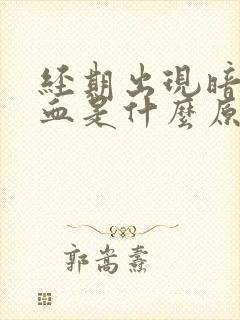 經期出現暗
血是什麼原
郭嵩燾